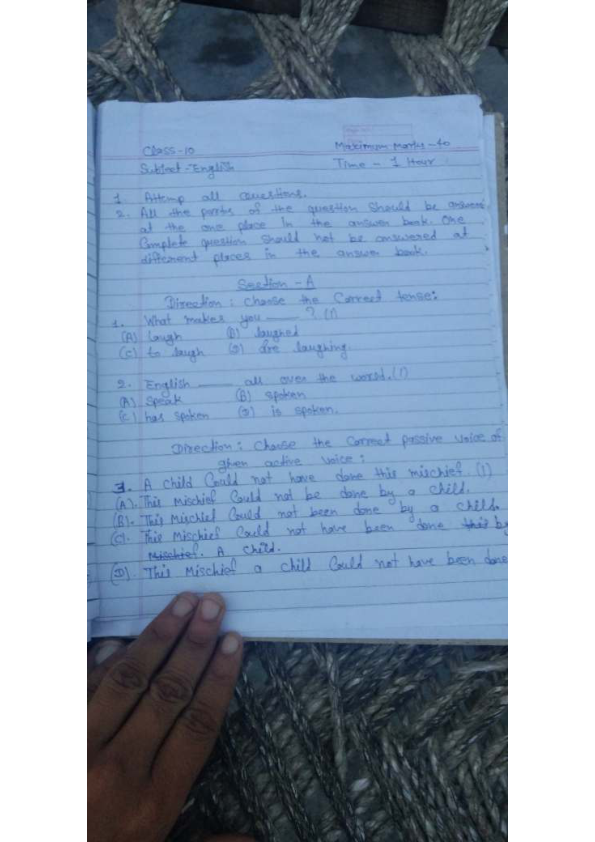 Class-10
Maximum Marks-40
Subject-English
Time - 1 Hour
1. Attemp all questions.
2. All the parts of the question should be answer
at the one place in the answer book. One
Complete question should not be answered at
different places in the answer book.
Section - A
Direction : Choose the Correct tense:
1. What makes you ____ ? (1)
(A) laugh (B) laughed
(C) to laugh (D) are laughing.
2. English ____ all over the world. (1)
(A) Speak (B) spoken
(C) has spoken (D) is spoken.
Direction : Choose the Correct passive voice of
given active voice :
3. A child Could not have done this mischief. (1)
(A). This Mischief Could not be done by a child.
(B). This Mischief Could not been done by a child.
(C). This Mischief Could not have been done this by
Mischief. A child.
(D). This Mischief a child Could not have been done